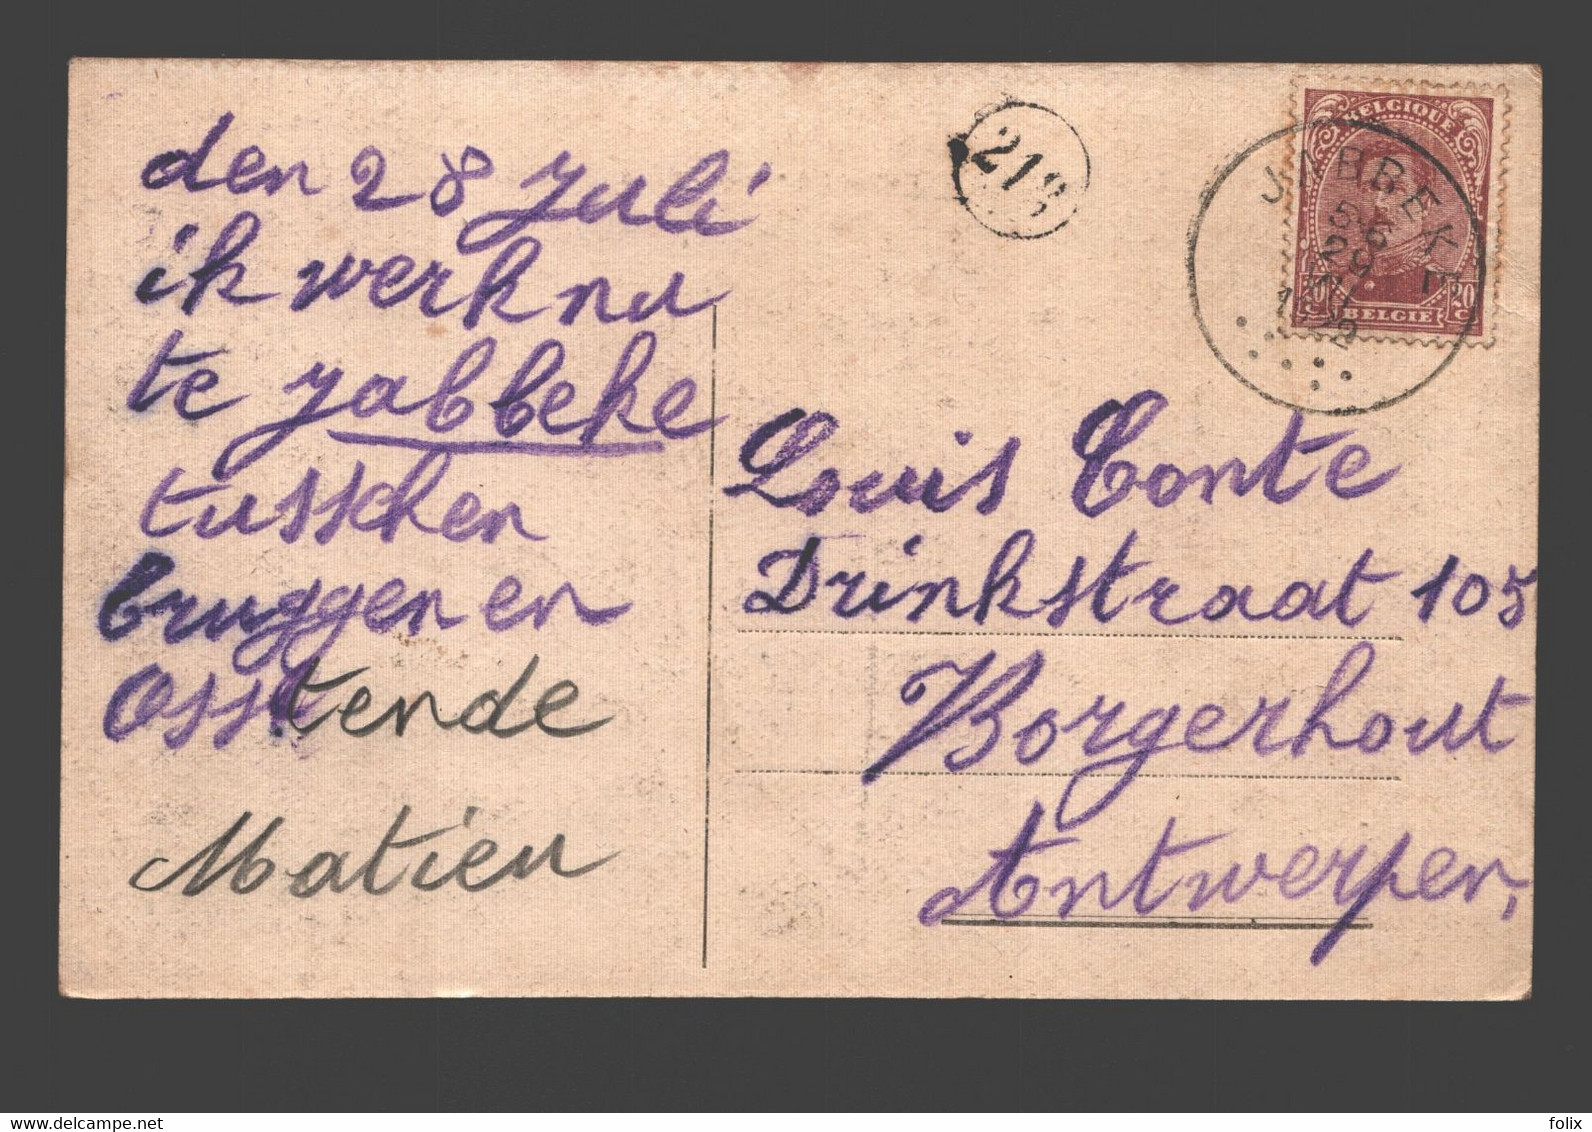 den 28 Juli
ik werk nu
te Jabbeke
tusschen
bruggen en
Osstende
Matieu
218
BELGIQUE
20 C
20 C
BELGIE
JABBEKE
5-6
29
VII
1922
Louis Conte
Drinkstraat 105
Borgerhout
Antwerpen,
www.delcampe.net
felix